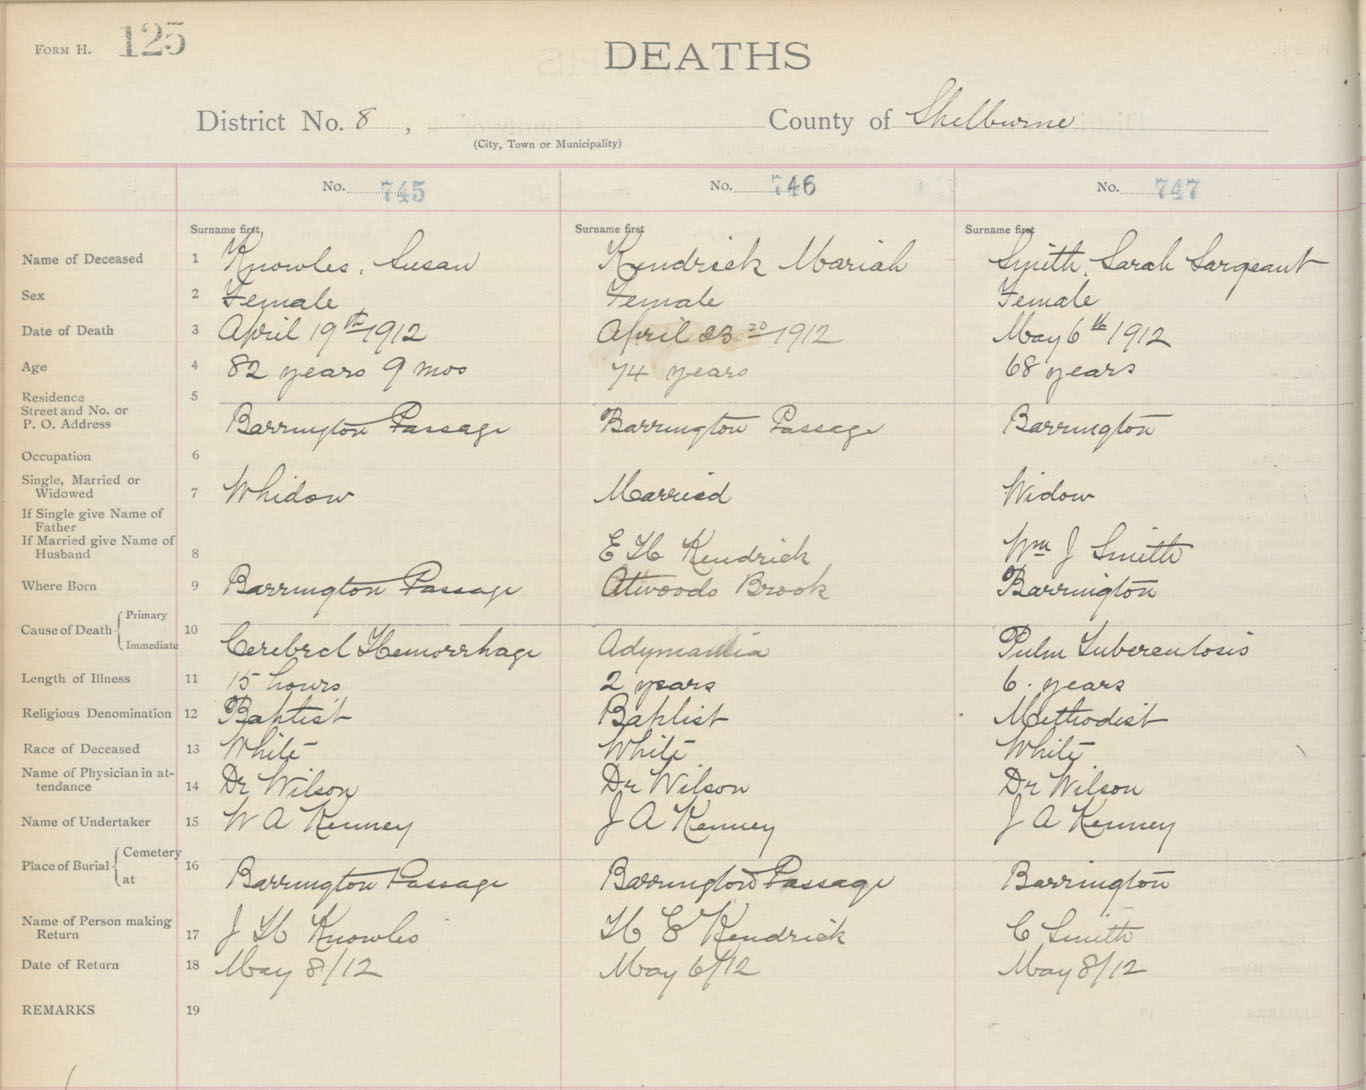 FORM H. 125
DEATHS
District No. 8 , County of Shelburne
(City, Town or Municipality)
No. 745 No. 746 No. 747
Surname first, Surname first Surname first
Name of Deceased 1 Knowles, Susan Kendrick Mariah Smith, Sarah Sargeant
Sex 2 Female Female Female
Date of Death 3 April 19th 1912 April 23 1912 May 6th 1912
Age 4 82 years 9 mos 74 years 68 years
Residence 5
Street and No. or
P. O. Address Barrington Passage Barrington Passage Barrington
Occupation 6
Single, Married or
Widowed 7 Whidow Married Widow
If Single give Name of
Father
If Married give Name of
Husband 8 E H Kendrick Wm J Smith
Where Born 9 Barrington Passage Atwoods Brook Barrington
Cause of Death Primary 10
Immediate Cerebrel Hemorrhage Pulm Tuberculosis
Length of Illness 11 15 hours 2 years 6 years
Religious Denomination 12 Baptist Baptist Methodist
Race of Deceased 13 White White White
Name of Physician in at-
tendance 14 Dr Wilson Dr Wilson Dr Wilson
Name of Undertaker 15 W A Kenney J A Kenney J A Kenney
Place of Burial Cemetery 16
at Barrington Passage Barrington Passage Barrington
Name of Person making
Return 17 J H Knowles H E Kendrick C Smith
Date of Return 18 May 8/12 May 6/12 May 8/12
REMARKS 19